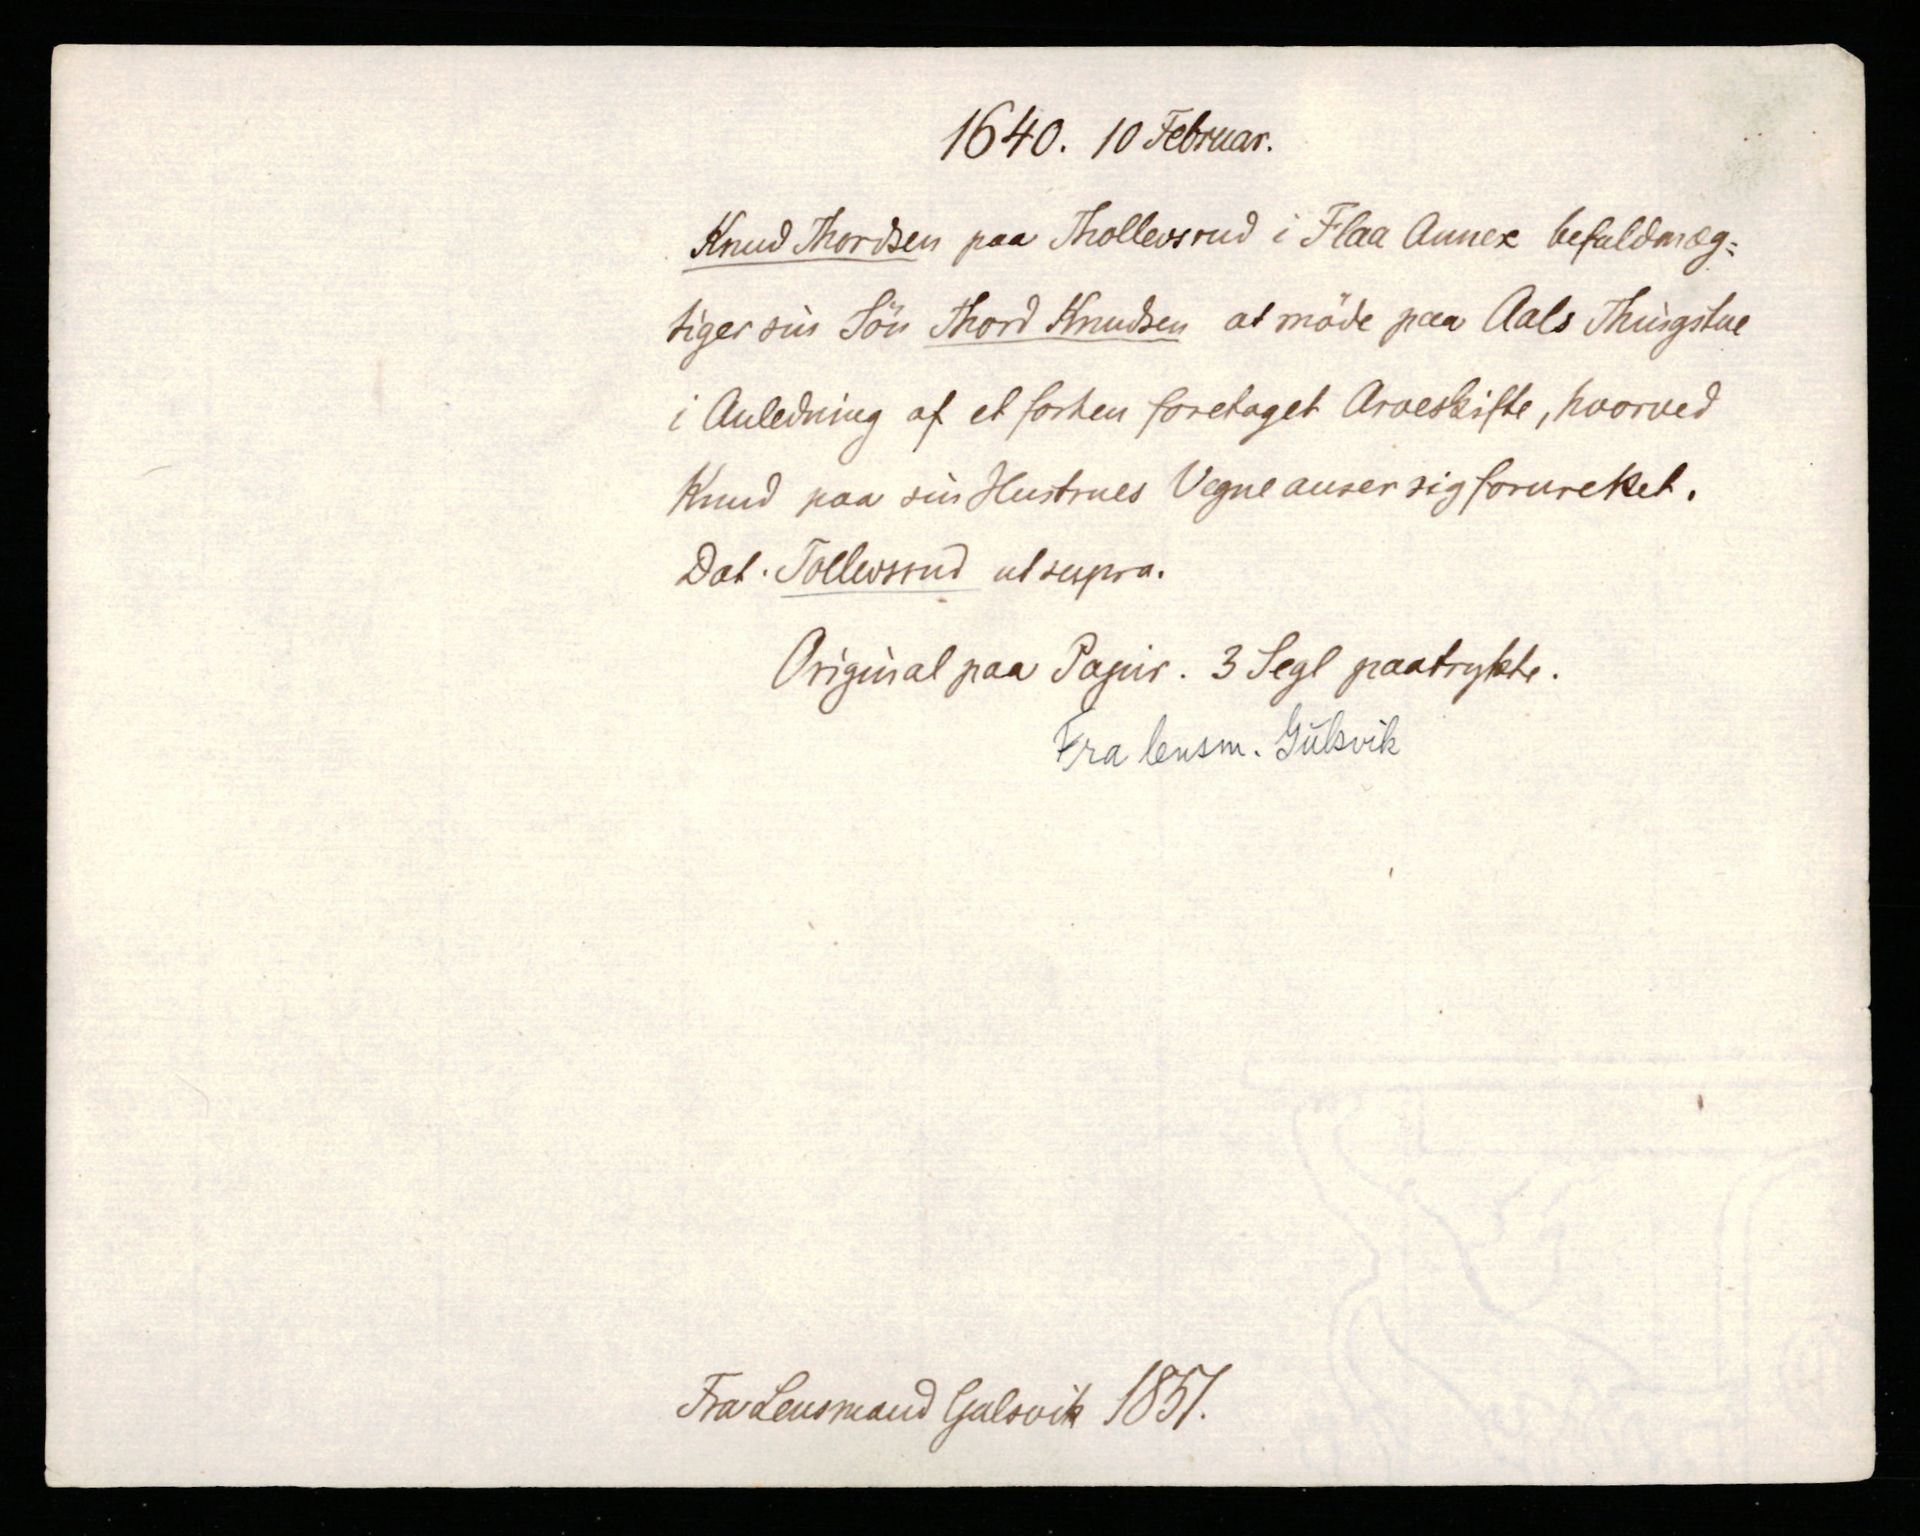 1640. 10 Februar.
Knud Thordsen paa Thollevsrud i Flaa Annex befuldmæg=
tiger sin Sön Thord Knudsen at möde paa Aals Thingstue
i Anledning af et forhen foretaget Arveskifte, hvorved
Knud paa sin Hustrues Vegne anser sig forurettet.
Dat. Tollevsrud ut supra.
Original paa Papir. 3 Segl paatrykte.
Fra lensm. Gulsvik
Fra Lensmand Gulsvik 1851.